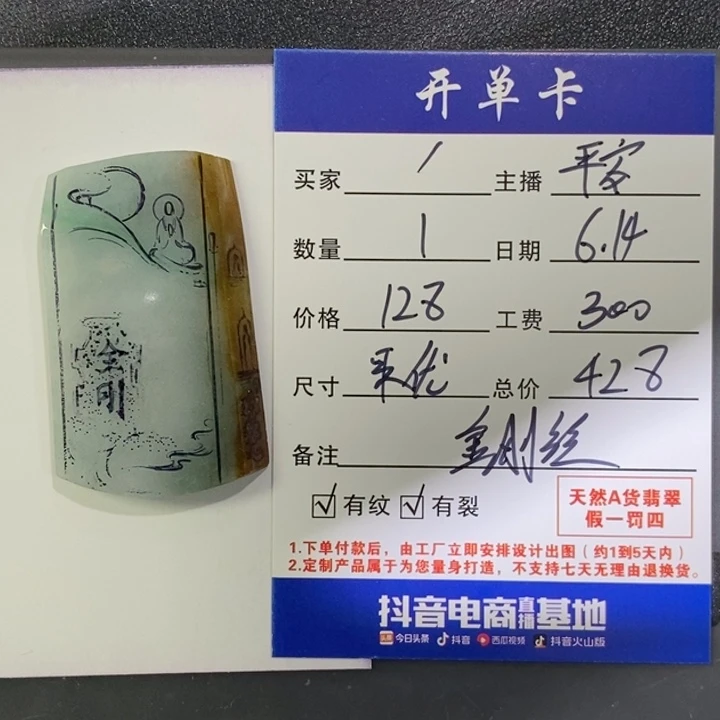 金
刚
开单卡
买家 / 主播 平安
数量 1 日期 6.14
价格 128 工费 300
尺寸 采优 总价 428
备注 金刚丝
☑有纹 ☑有裂
天然A货翡翠
假一罚四
1.下单付款后，由工厂立即安排设计出图（约1到5天内）
2.定制产品属于为您量身打造，不支持七天无理由退换货。
抖音电商直播基地
头条 今日头条 抖音 西瓜视频 抖音火山版